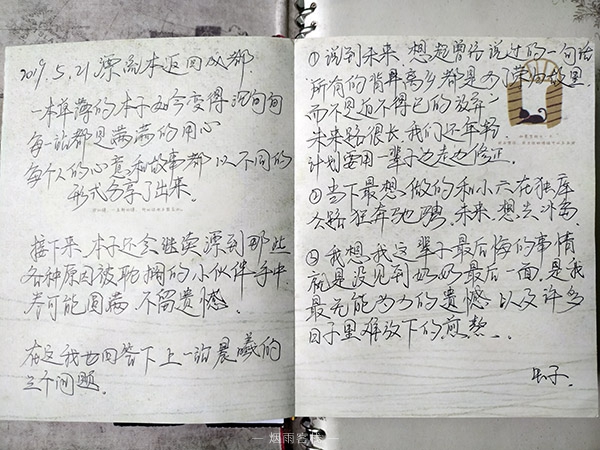 2019.5.21 漂流本返回成都
一本单薄的本子如今变得沉甸甸
每一站都是满满的用心
每个人的心意和故事都以不同的
形式分享了出来.
接下来,本子还会继续漂到那些
各种原因被耽搁的小伙伴手中.
尽可能圆满,不留遗憾.
在这我也回答下上一站晨曦的
三个问题.
①说到未来.想起曾经说过的一句话
"所有的背井离乡都是为了荣归故里.
而不是迫不得已的放弃"
未来路很长,我们还年轻
计划要用一辈子边走边修正.
②当下最想做的和小六在独库
公路狂奔驰骋.未来.想去冰岛
③我想我这辈子最后悔的事情
就是没见到奶奶最后一面.是我
最无能为力的遗憾.以及许多
日子里难放下的煎熬.
— 烟雨客栈 —